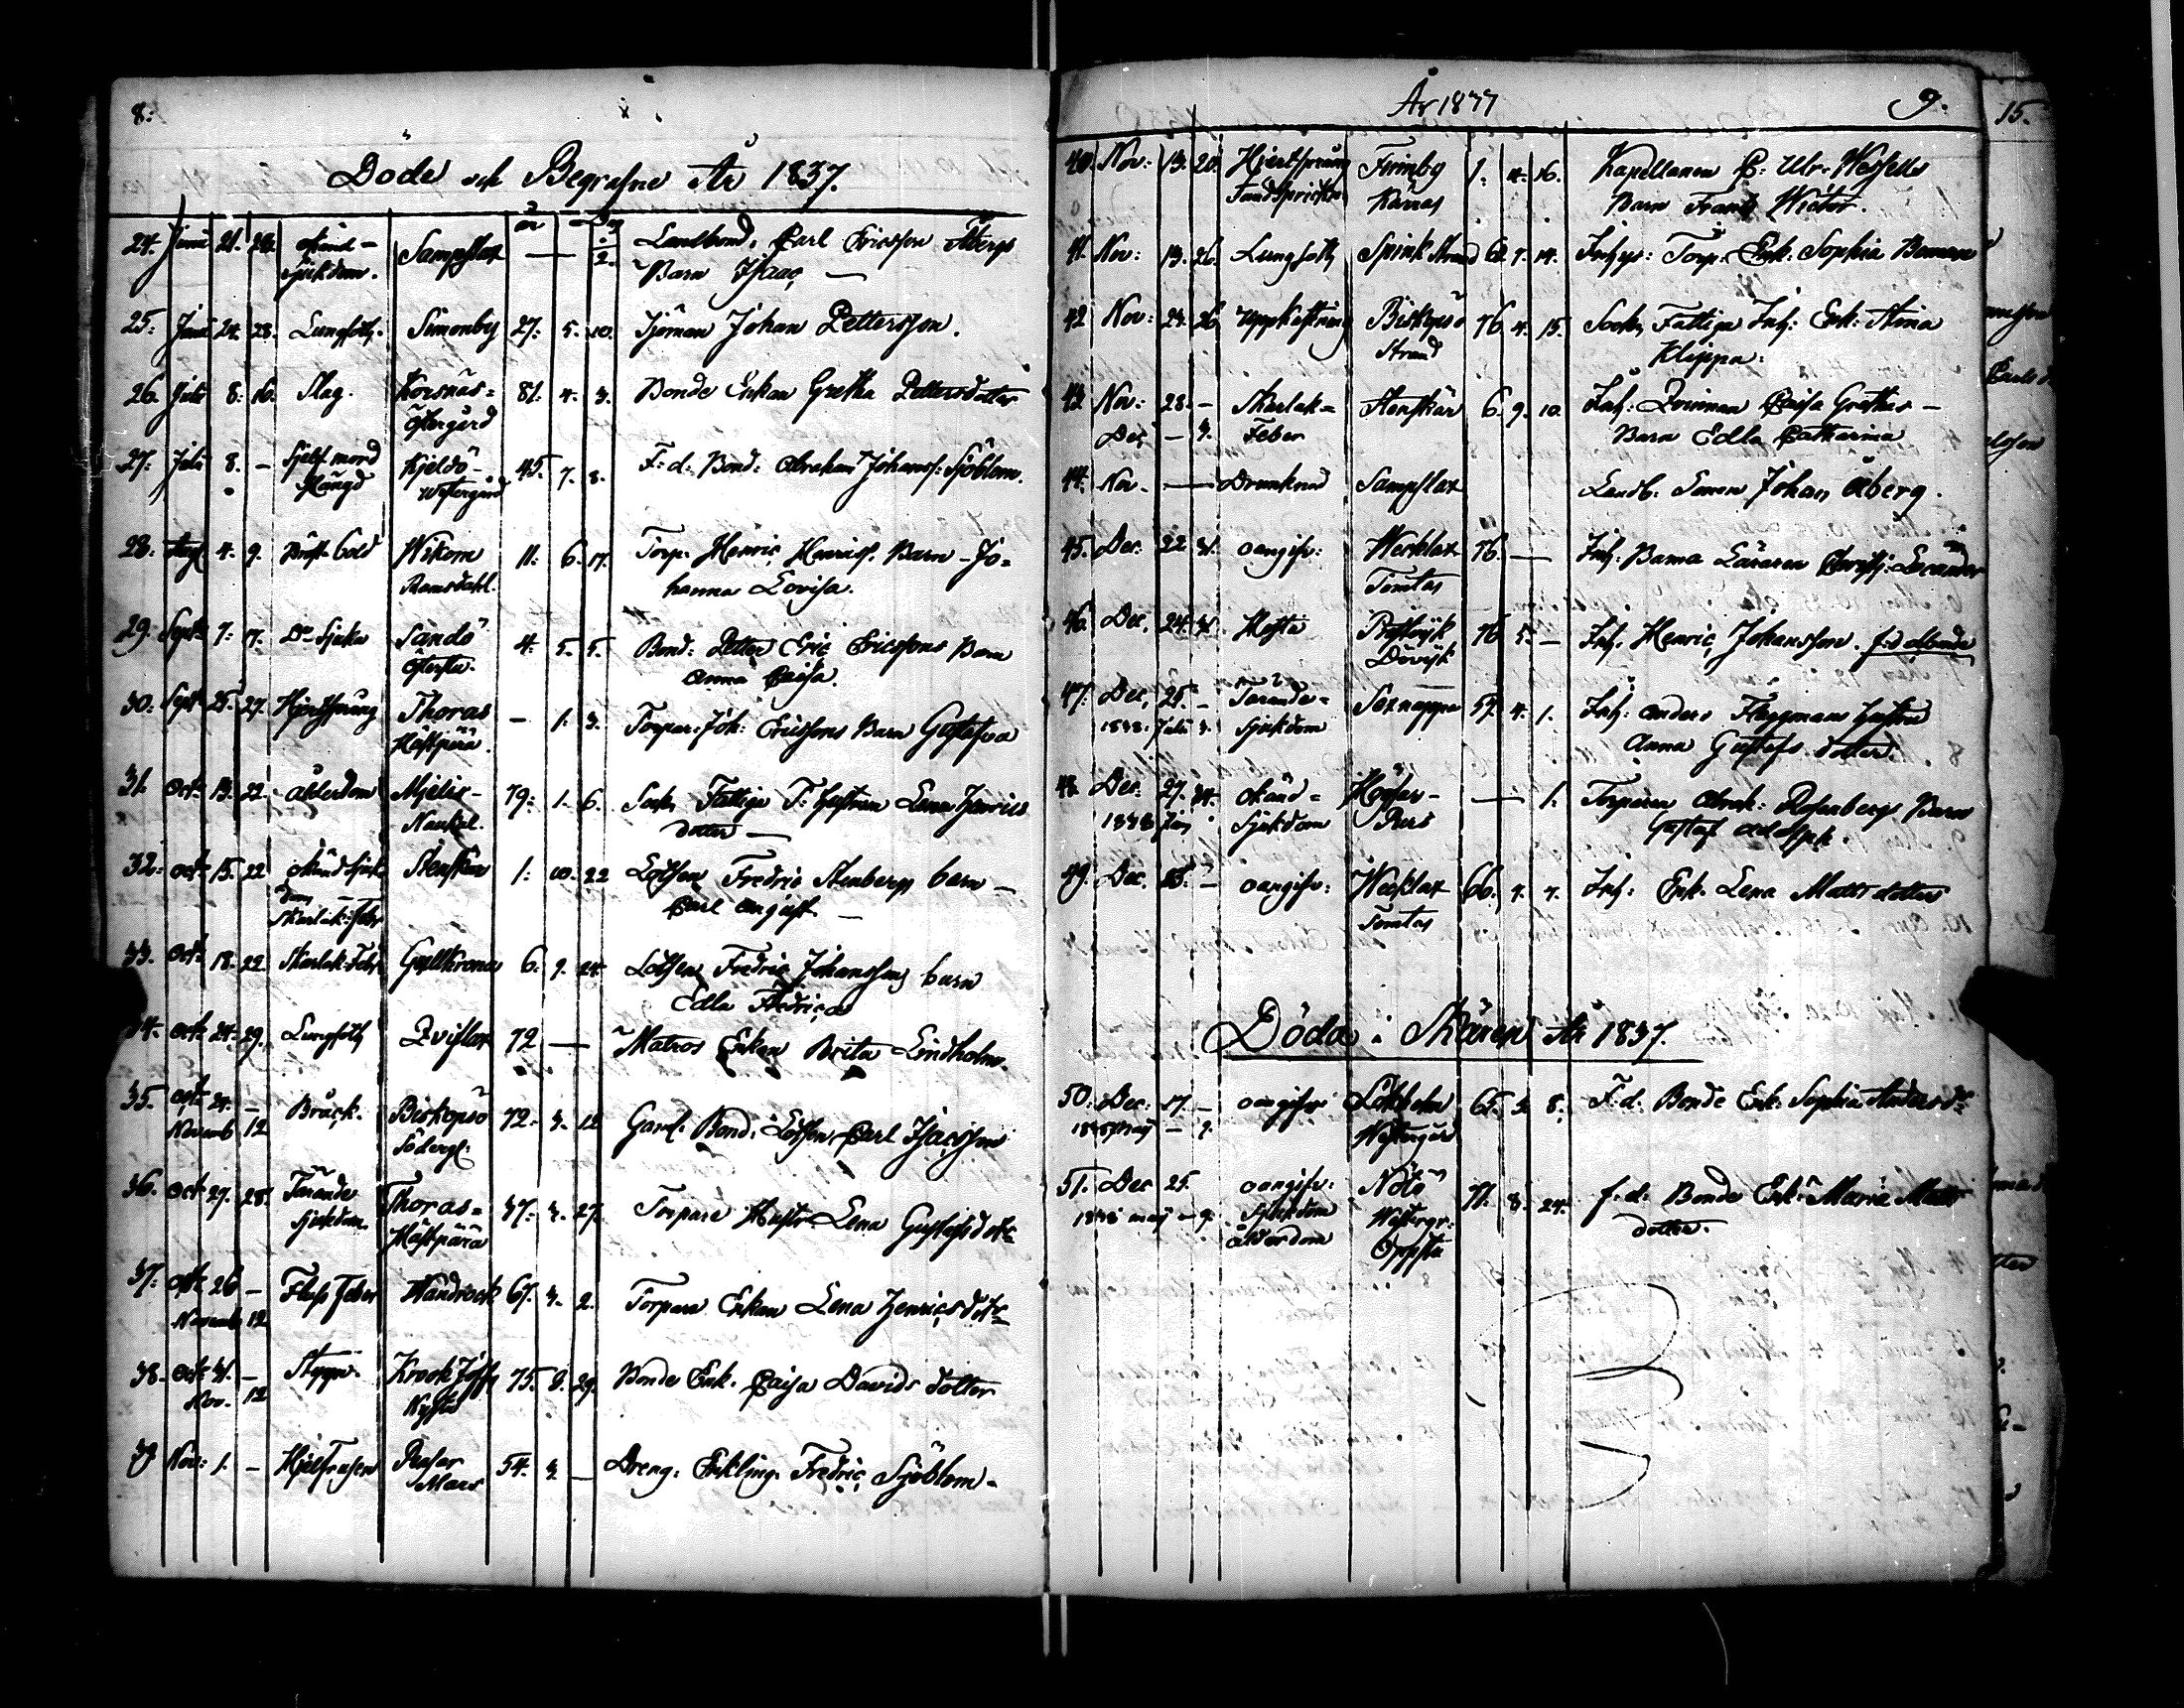 8:
Döde och Begrafne År 1837.
år Dag
24. Junii 21. 28. okänd - Sampslax — 2. Landbond. Carl Ericsson Åbergs
sjukdom. Barn Isaac —
25: Junii 24. 28. Lungsoth. Simonby 27. 5. 10. Sjöman Johan Pettersson.
26. Julii 8. 16. Slag. Korsnäs= 81. 4. 3. Bonde Enkan Gretha Pettersdotter
östergård
27: Julii 8. - Sjelf mord Kjeldö- 45. 7. 8. F: d: Bond: Abraham Johanss: Sjöblom.
Hängd westergård
28: Aug. 4. 9. Bröst böld Wikom 11. 6. 17. Torp. Henric Henricss. Barn - Jo=
Ramsdahl. hanna Lovisa.
29. Sept. 7. 17. Do Sjuka Sandö 4. 5. 5. Bond: Petter Eric Ericssons Barn
Anna Caisa.
30. Sept. 25. 27. Hjertsprång Thoras — 1. 3. Torpar. Joh: Ericssons Barn Gustafva
Hästpärä.
31. Oct. 13. 22. ålderdom 79. 1. 6. Sock. Fattiga Lena Henrics
dotter —
32. oct. 15. 22 okänd sjuk Stenskär 1. 10. 22 Lotsen Fredric Stenbergs barn -
dom Carl August -
Skarlak: Feb:
33. Oct. 18. 22 Skarlak: Feb: Gyltkrona 6. 9. 24. Lotsen Fredric Johanssons barn
Edla Fredrica
34. oct. 24. 29. Lungsoth Qvislax 72 — Matros Enkan Brita Lindholm.
35. oct. 24. - Bråck. Biskopsö 72. 3. 12 Gaml. Bond: Lotsen Carl Isacsson
Novemb. 12 Söderg:
36. Oct. 27. 28. Tärande Thoras= 37. 3. 27. Torpare Hustr. Lena Gustafsdotr
sjukdom Hästpärä
37. oct. 26 - Fluss Feber Wandrock 67. 3. 2. Torpare Enkan Lena Henricsdotr
Novemb 12
38. oct. 31. - Styng. 75. 8. 29. Bonde Enk. Caisa Davids dotter
Nov. 12
39 Nov: 1. - 54. 3. — Dreng. Enkling. Fredric Sjöblom -
År 1877 9.
40. Nov: 13. 20. Hjertsprång Finnby 1. 4. 16. Kapellanen C: Ulr: Wessells
Tandsprickn Kärras Barn Frans Wictor.
41. Nov: 13. 26. Lungsoth Spink Strand 62. 7. 14. Inhys: Torp: Enk: Sophia Boman
42 Nov: 24. 26 Uppkastning Biskopsö 76. 4. 15. Sock. Fattiga Inh: Enk: Stina
Strand Klippa.
43 Nov: 28. - Skarlak= Stenskär 6. 9. 10. Inh: Caisa Grethas -
Dec. - 3. Feber Barn Edla Catharina
44. Nov. — Drunknad Sampslax Landb: Sonen Johan Åberg.
45. Dec. 22 31. oangifv: Wecklax 76. — Inh: Barna Läraren Christ:
Tomtas
46. Dec. 24. 31. Hosta Prostvik 76 5. - Inh. Henric Johansson. f:d Bonde
Dövik
47. Dec. 25. - Tärande= Saxnappa 59. 4. 1. Inh: Anders Flaggmans hustru
1838. Sjukdom Anna Gustafs dotter.
48. Dec. 27. okänd= — 1. Torparen Abrah: Rosenbergs Barn
1838 Jan Sjukdom Pers Gustaf Adolph.
49. Dec. 25. - oangifv: Wecklax 66. 4. 4. Inh: Enk. Lena Matts dotter
Tomtas
Döda i Skären År 1837.
50. Dec. 17. - oangifvn Lökholm 65. 3. 8. F. d. Bonde Enk. Sophia Andersdr
1838 Maij - 9. Westergård
51. Dec 25. oangifv: Nötö 71. 8. 24. f. d. Bonde Enk. Maria Matts
1838 maij - 9. Sjukdom Westergr: dotter.
ålderdom Oppsta
15.